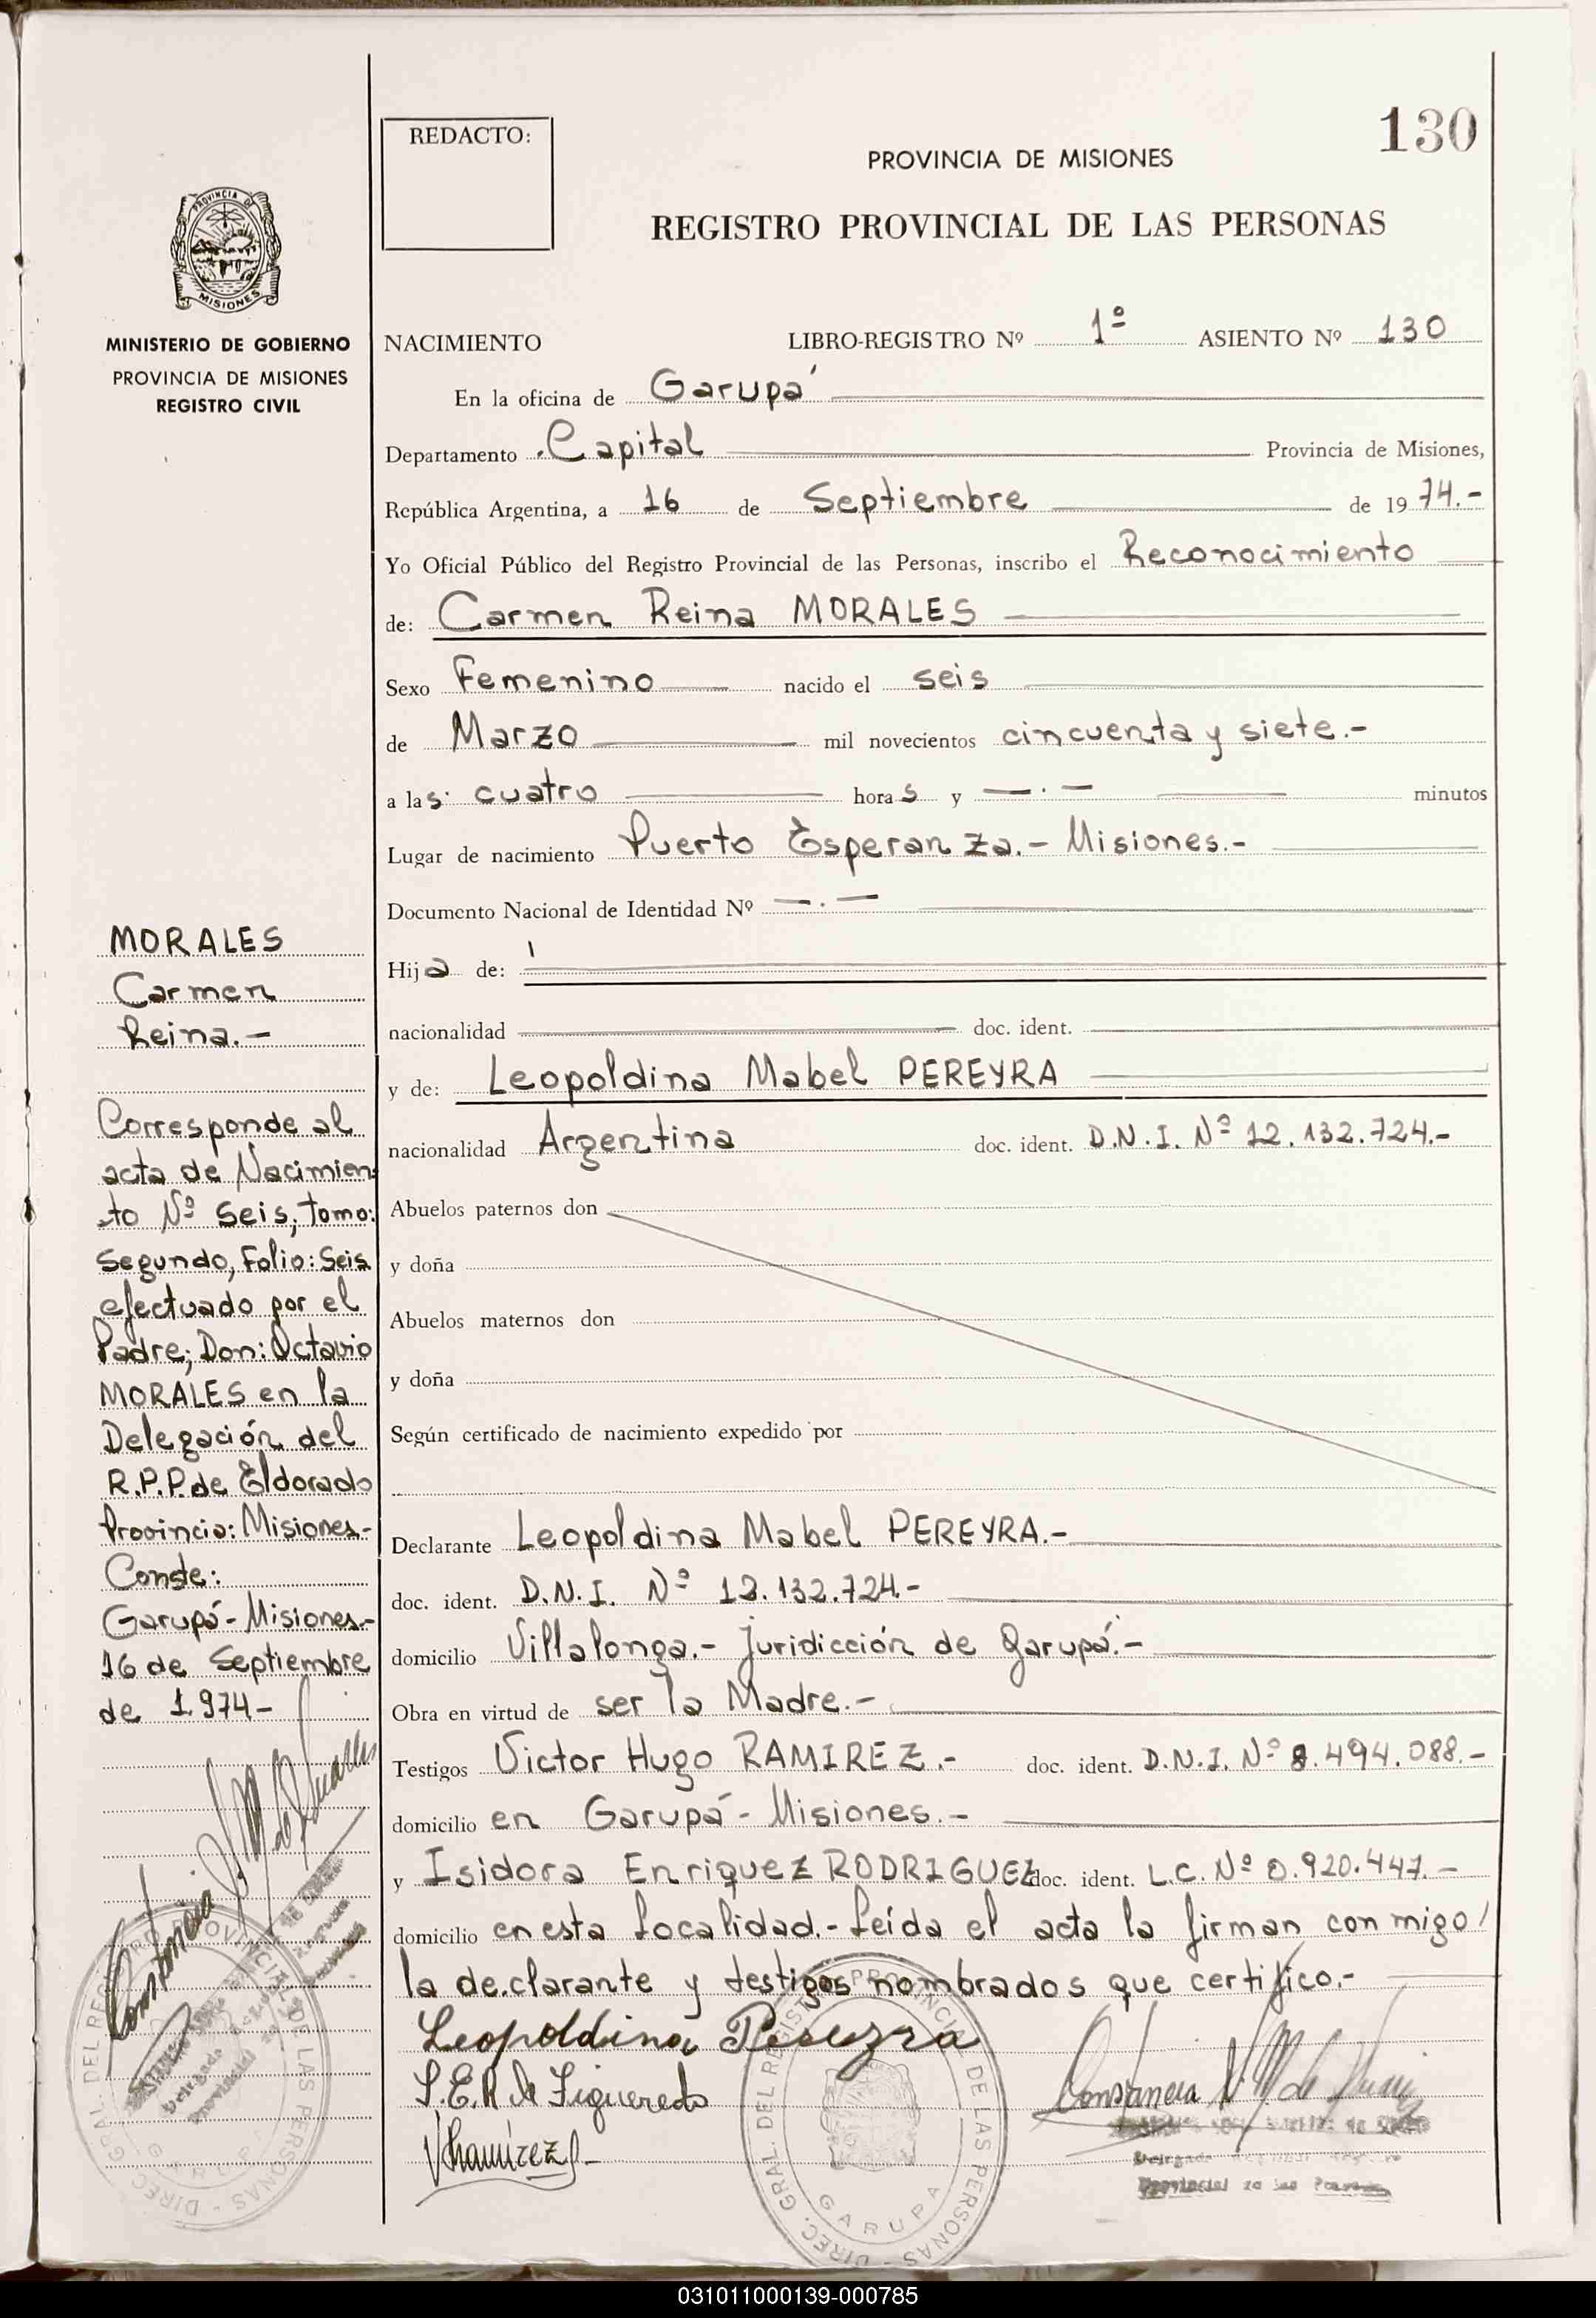 130
REDACTO:
PROVINCIA DE MISIONES
REGISTRO PROVINCIAL DE LAS PERSONAS
PROVINCIA DE
MISIONES
MINISTERIO DE GOBIERNO
PROVINCIA DE MISIONES
REGISTRO CIVIL
NACIMIENTO LIBRO-REGISTRO Nº 1º ASIENTO Nº 130
En la oficina de Garupá
Departamento Capital Provincia de Misiones,
República Argentina, a 16 de Septiembre de 1974.-
Yo Oficial Público del Registro Provincial de las Personas, inscribo el Reconocimiento
de: Carmen Reina MORALES
Sexo Femenino nacido el seis
de Marzo mil novecientos cincuenta y siete.-
a las cuatro horas y —.— minutos
Lugar de nacimiento Puerto Esperanza.- Misiones.-
Documento Nacional de Identidad Nº —.—
Hija de:
nacionalidad doc. ident.
y de: Leopoldina Mabel PEREYRA
nacionalidad Argentina doc. ident. D.N.I. Nº 12.132.724.-
Abuelos paternos don
y doña
Abuelos maternos don
y doña
Según certificado de nacimiento expedido por
Declarante Leopoldina Mabel PEREYRA.-
doc. ident. D.N.I. Nº 12.132.724.-
domicilio Villalonga.- Juridicción de Garupá.-
Obra en virtud de ser la Madre.-
Testigos Victor Hugo RAMIREZ.- doc. ident. D.N.I. Nº 8.494.088.-
domicilio en Garupá - Misiones.-
y Isidora Enriquez RODRIGUEZ doc. ident. L.C. Nº 0.920.447.-
domicilio en esta localidad.- Leída el acta la firman conmigo/
la declarante y testigos nombrados que certifico.-
Leopoldina Pereyra
I.E.R de Figueredo
VHamirez
Constancia M de
Delegada
Provincial de las Personas
DIREC. GRAL. DEL REGISTRO PROVINCIAL DE LAS PERSONAS -
GARUPA
MORALES
Carmen
Reina.-
Corresponde al
acta de Nacimien
to Nº Seis, Tomo:
Segundo, Folio: Seis
efectuado por el
Padre; Don: Octavio
MORALES en la
Delegación del
R.P.P. de Eldorado
Provincia: Misiones-
Conste:
Garupá - Misiones.-
16 de Septiembre
de 1.974-
Constancia
Delegada
Provincial
DIREC. GRAL. DEL REGISTRO PROVINCIAL DE LAS PERSONAS -
GARUPA
031011000139-000785